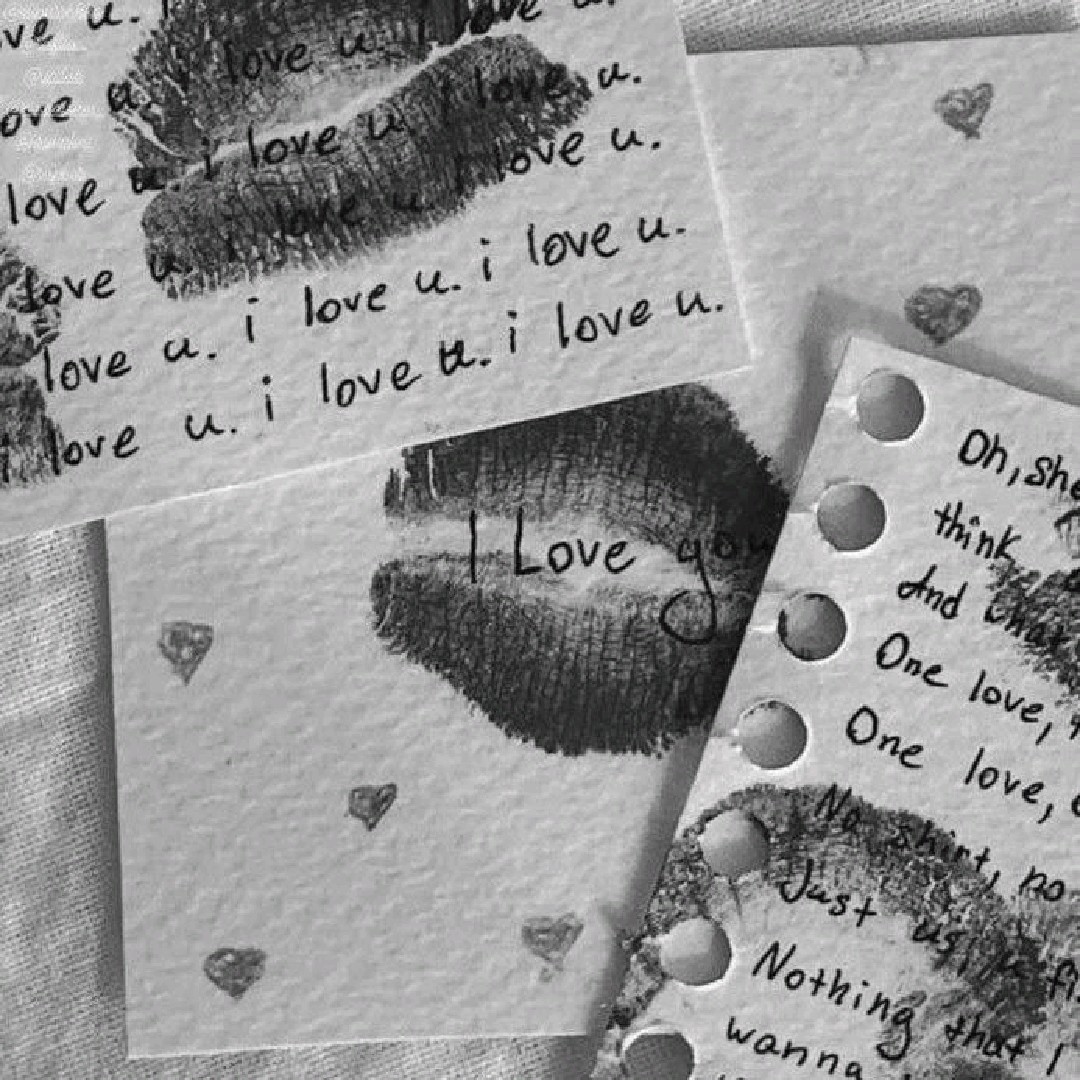 ve u. i love u.
ove u. i love u. i love u.
love u. i love u. i love u.
love u. i love u. i love u.
love u. i love u. i love u.
i love u. i love u. i love u.
I Love you
Oh, she
think
And what
One love,
One love,
No shirt, no
Just us,
Nothing that I
wanna